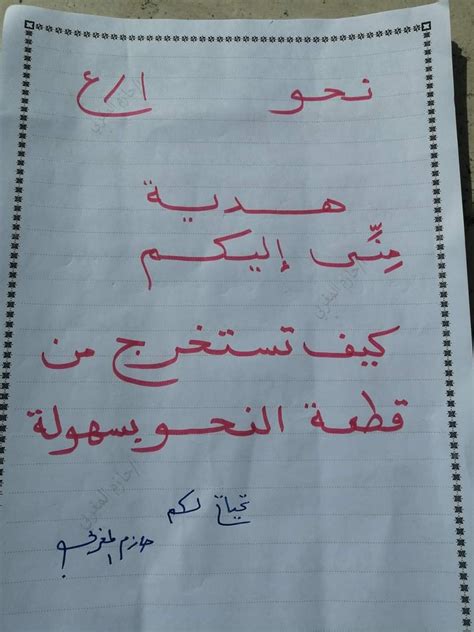 نحو ١/ع
هدية
مِنِّى إليكم
كيف تستخرج من
قطعة النحو بسهولة
تحياتى لكم
حازم المغربى